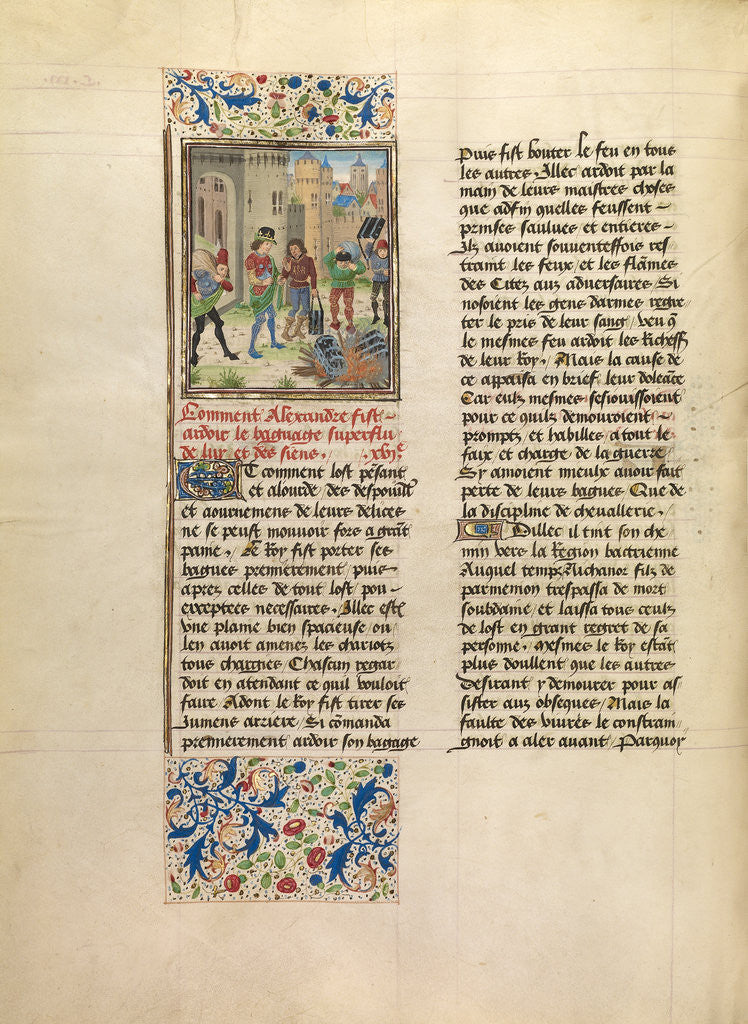 Comment Alexandre fist
ardoir le baguage superflu
de luy et des siens. .xvi.e
Et comment lost pesant
et alourde / des despouilles
et aournemens de leurs delices
ne se peust mouuoir fors a grãt
paine. Le Roy fist porter ses
bagues premierement / puis
apres celles de tout lost / pou
exceptees necessaires. Illec estoit
vne plaine bien spacieuse / ou
len auoit amenez les chariotz
tous chargies / Chascun regar
doit en atendant ce quil vouloit
faire / Adont le Roy fist tirer ses
Jumens arriere / Si cõmanda
premierement ardoir son bagage
Puis fist bouter le feu en tous
les autres / Illec ardoit par la
main de leurs maistres choses
que adfin quelles feussent
prinses saulues et entieres
Ilz auoient souuenteffois res
traint les feux / et les flãmes
des Citez aux aduersaires / Si
nosoient les gens darmes regre
ter le pris de leur sang / veu q̃
le mesmes feu ardoit les Richesses
de leur Roy. Mais la cause de
ce appaisa en brief leur doleãce
Car eulx mesmes sesiouissoient
pour ce quilz demouroient
promptz / et habilles a tout le
faix et charge de la guerre
Sy amoient mieulx auoir fait
perte de leurs bagues / Que de
la discipline de cheuallerie.
Dillec il tint son che
min vers la Region bactrienne
Auquel temps / Nichanor filz de
parmenion trespassa de mort
soubdaine / et laissa tous ceulx
de lost en grant regret de sa
personne. Mesmes le Roy estãt
plus doullent que les autres
desirant y demourer pour as
sister aux obseques / Mais la
faulte des viures le constrain
gnoit a aler auant / Parquoy